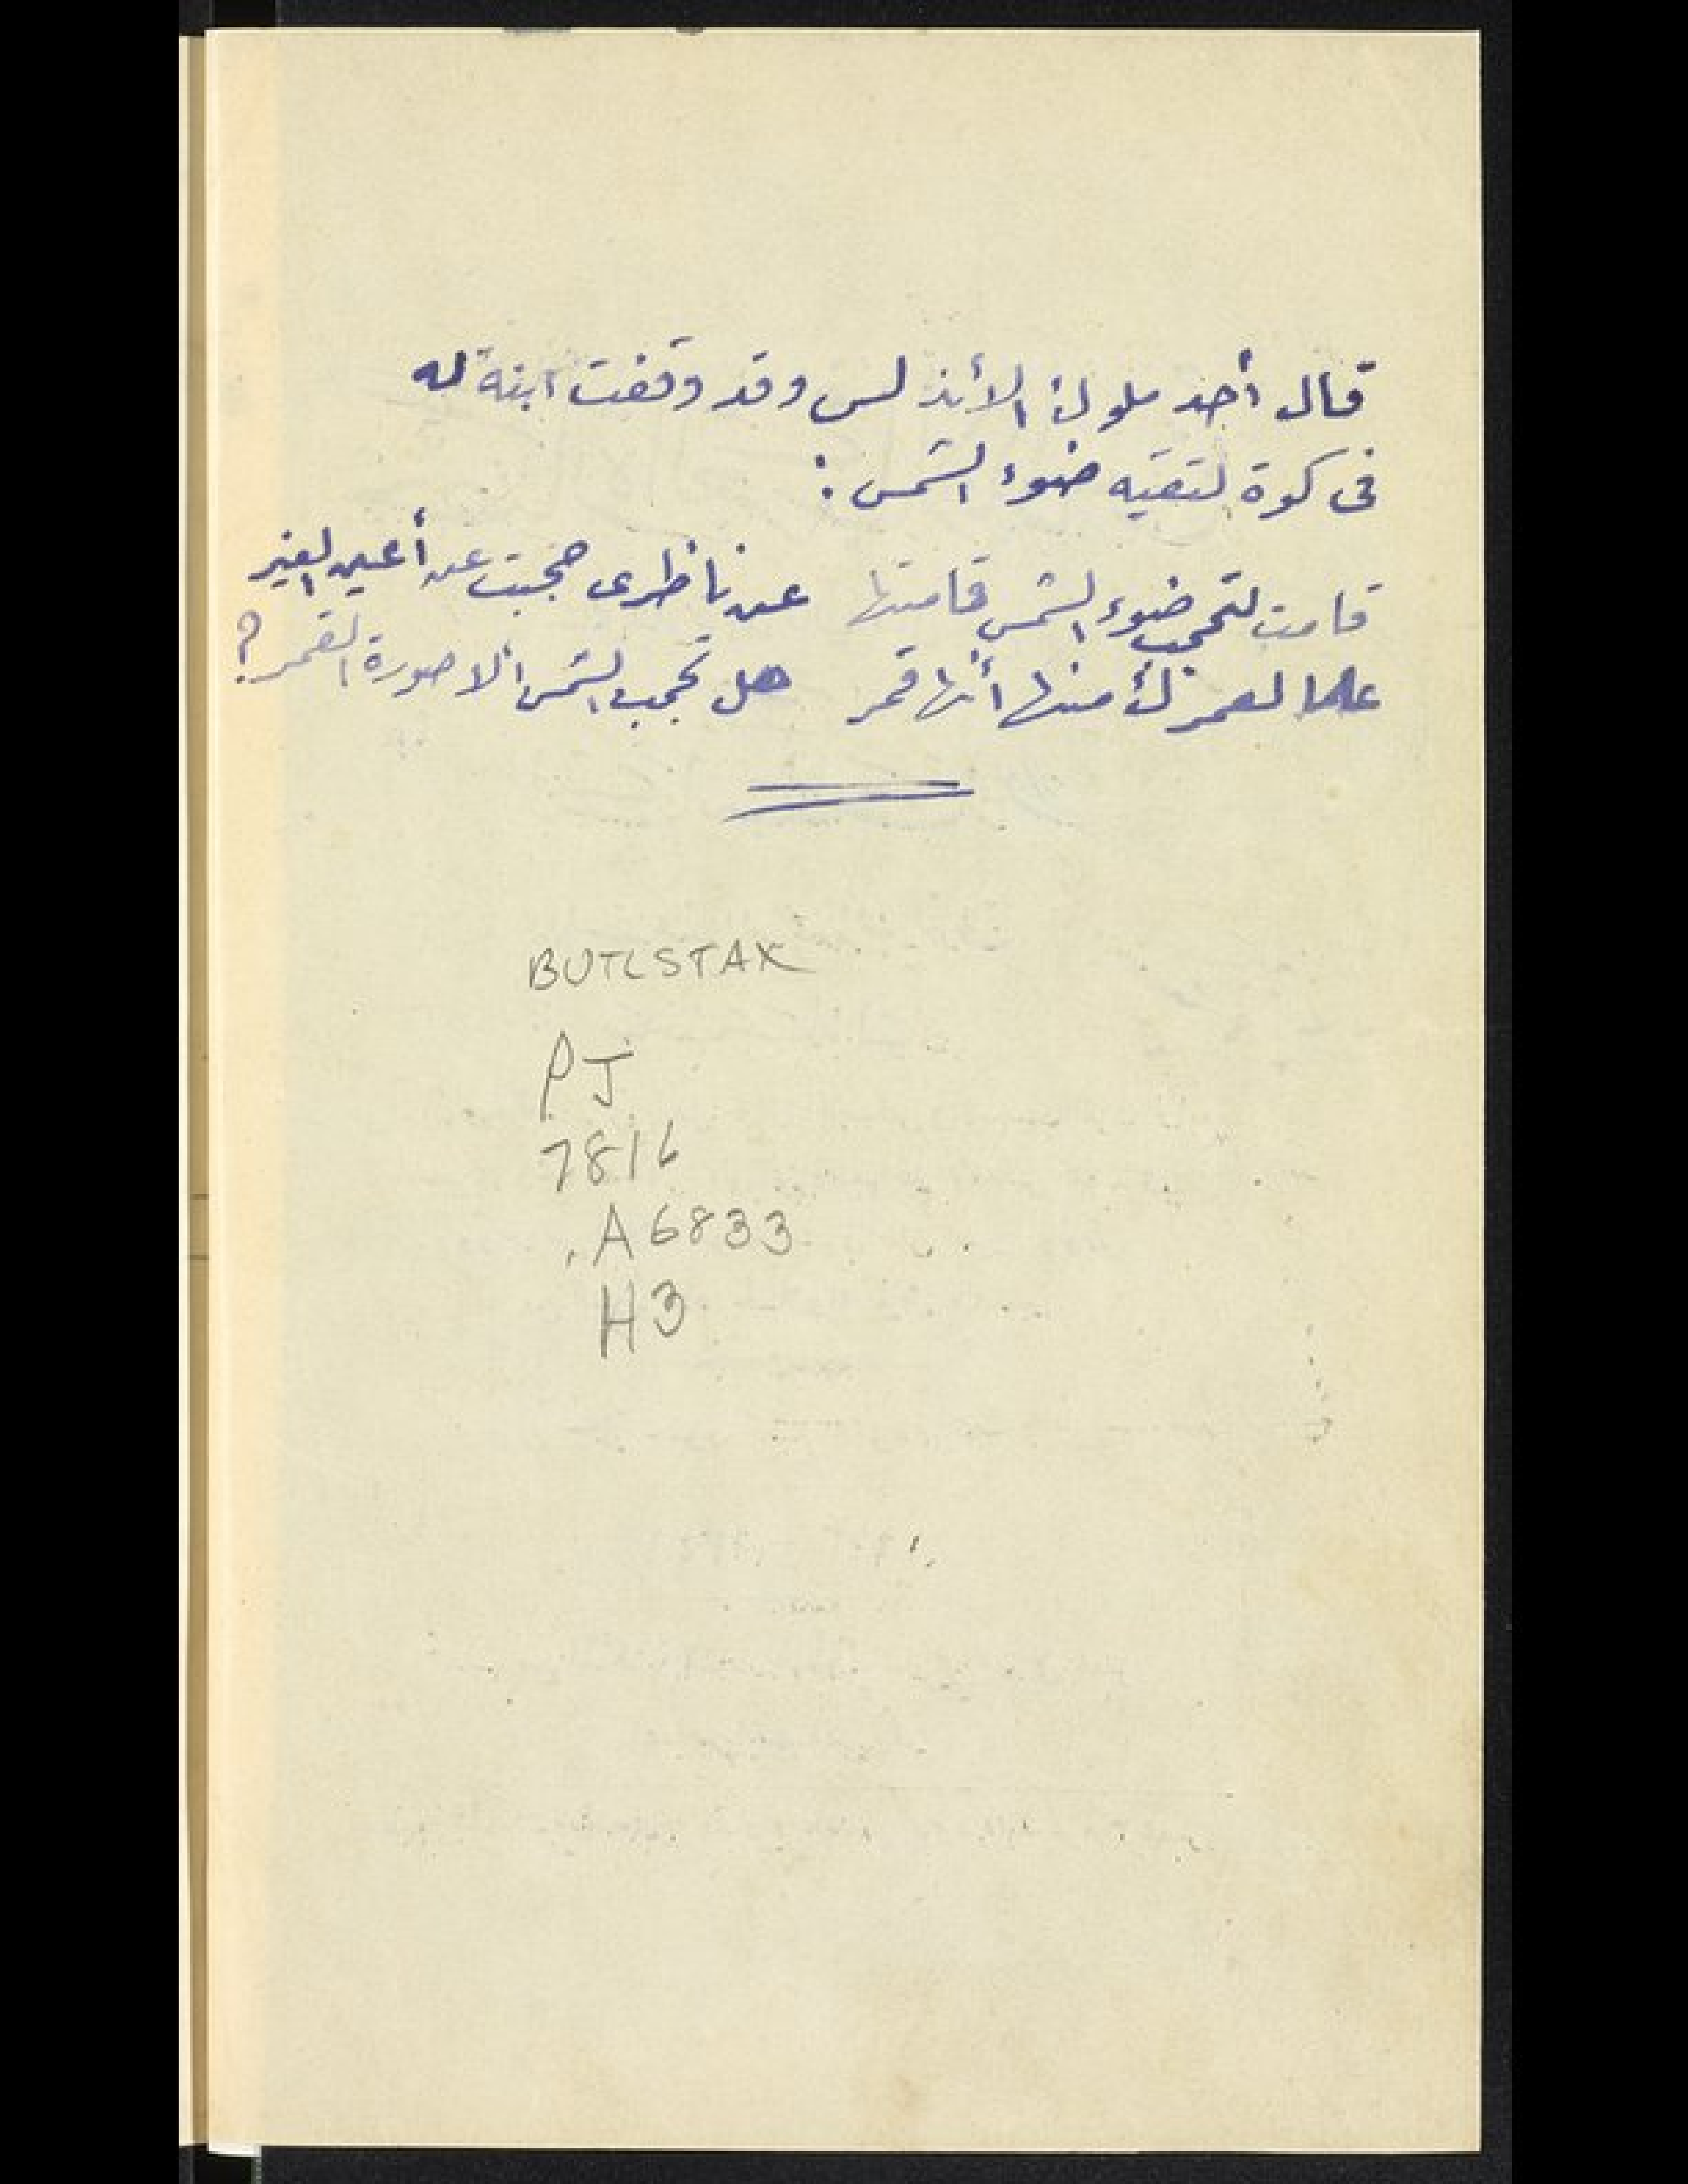 قال أحد ملوك الأندلس وقد وقفت ابنة له
فى كوة لتقيه ضوء الشمس :
قامت لتحجب ضوء الشمس قامتها عن ناظرى حجبت عن أعين الغير
علما لعمرك منها أنها قمر هل تحجب الشمس الا صورة القمر ؟
BUTLSTAX
PJ
7816
.A6833
H3